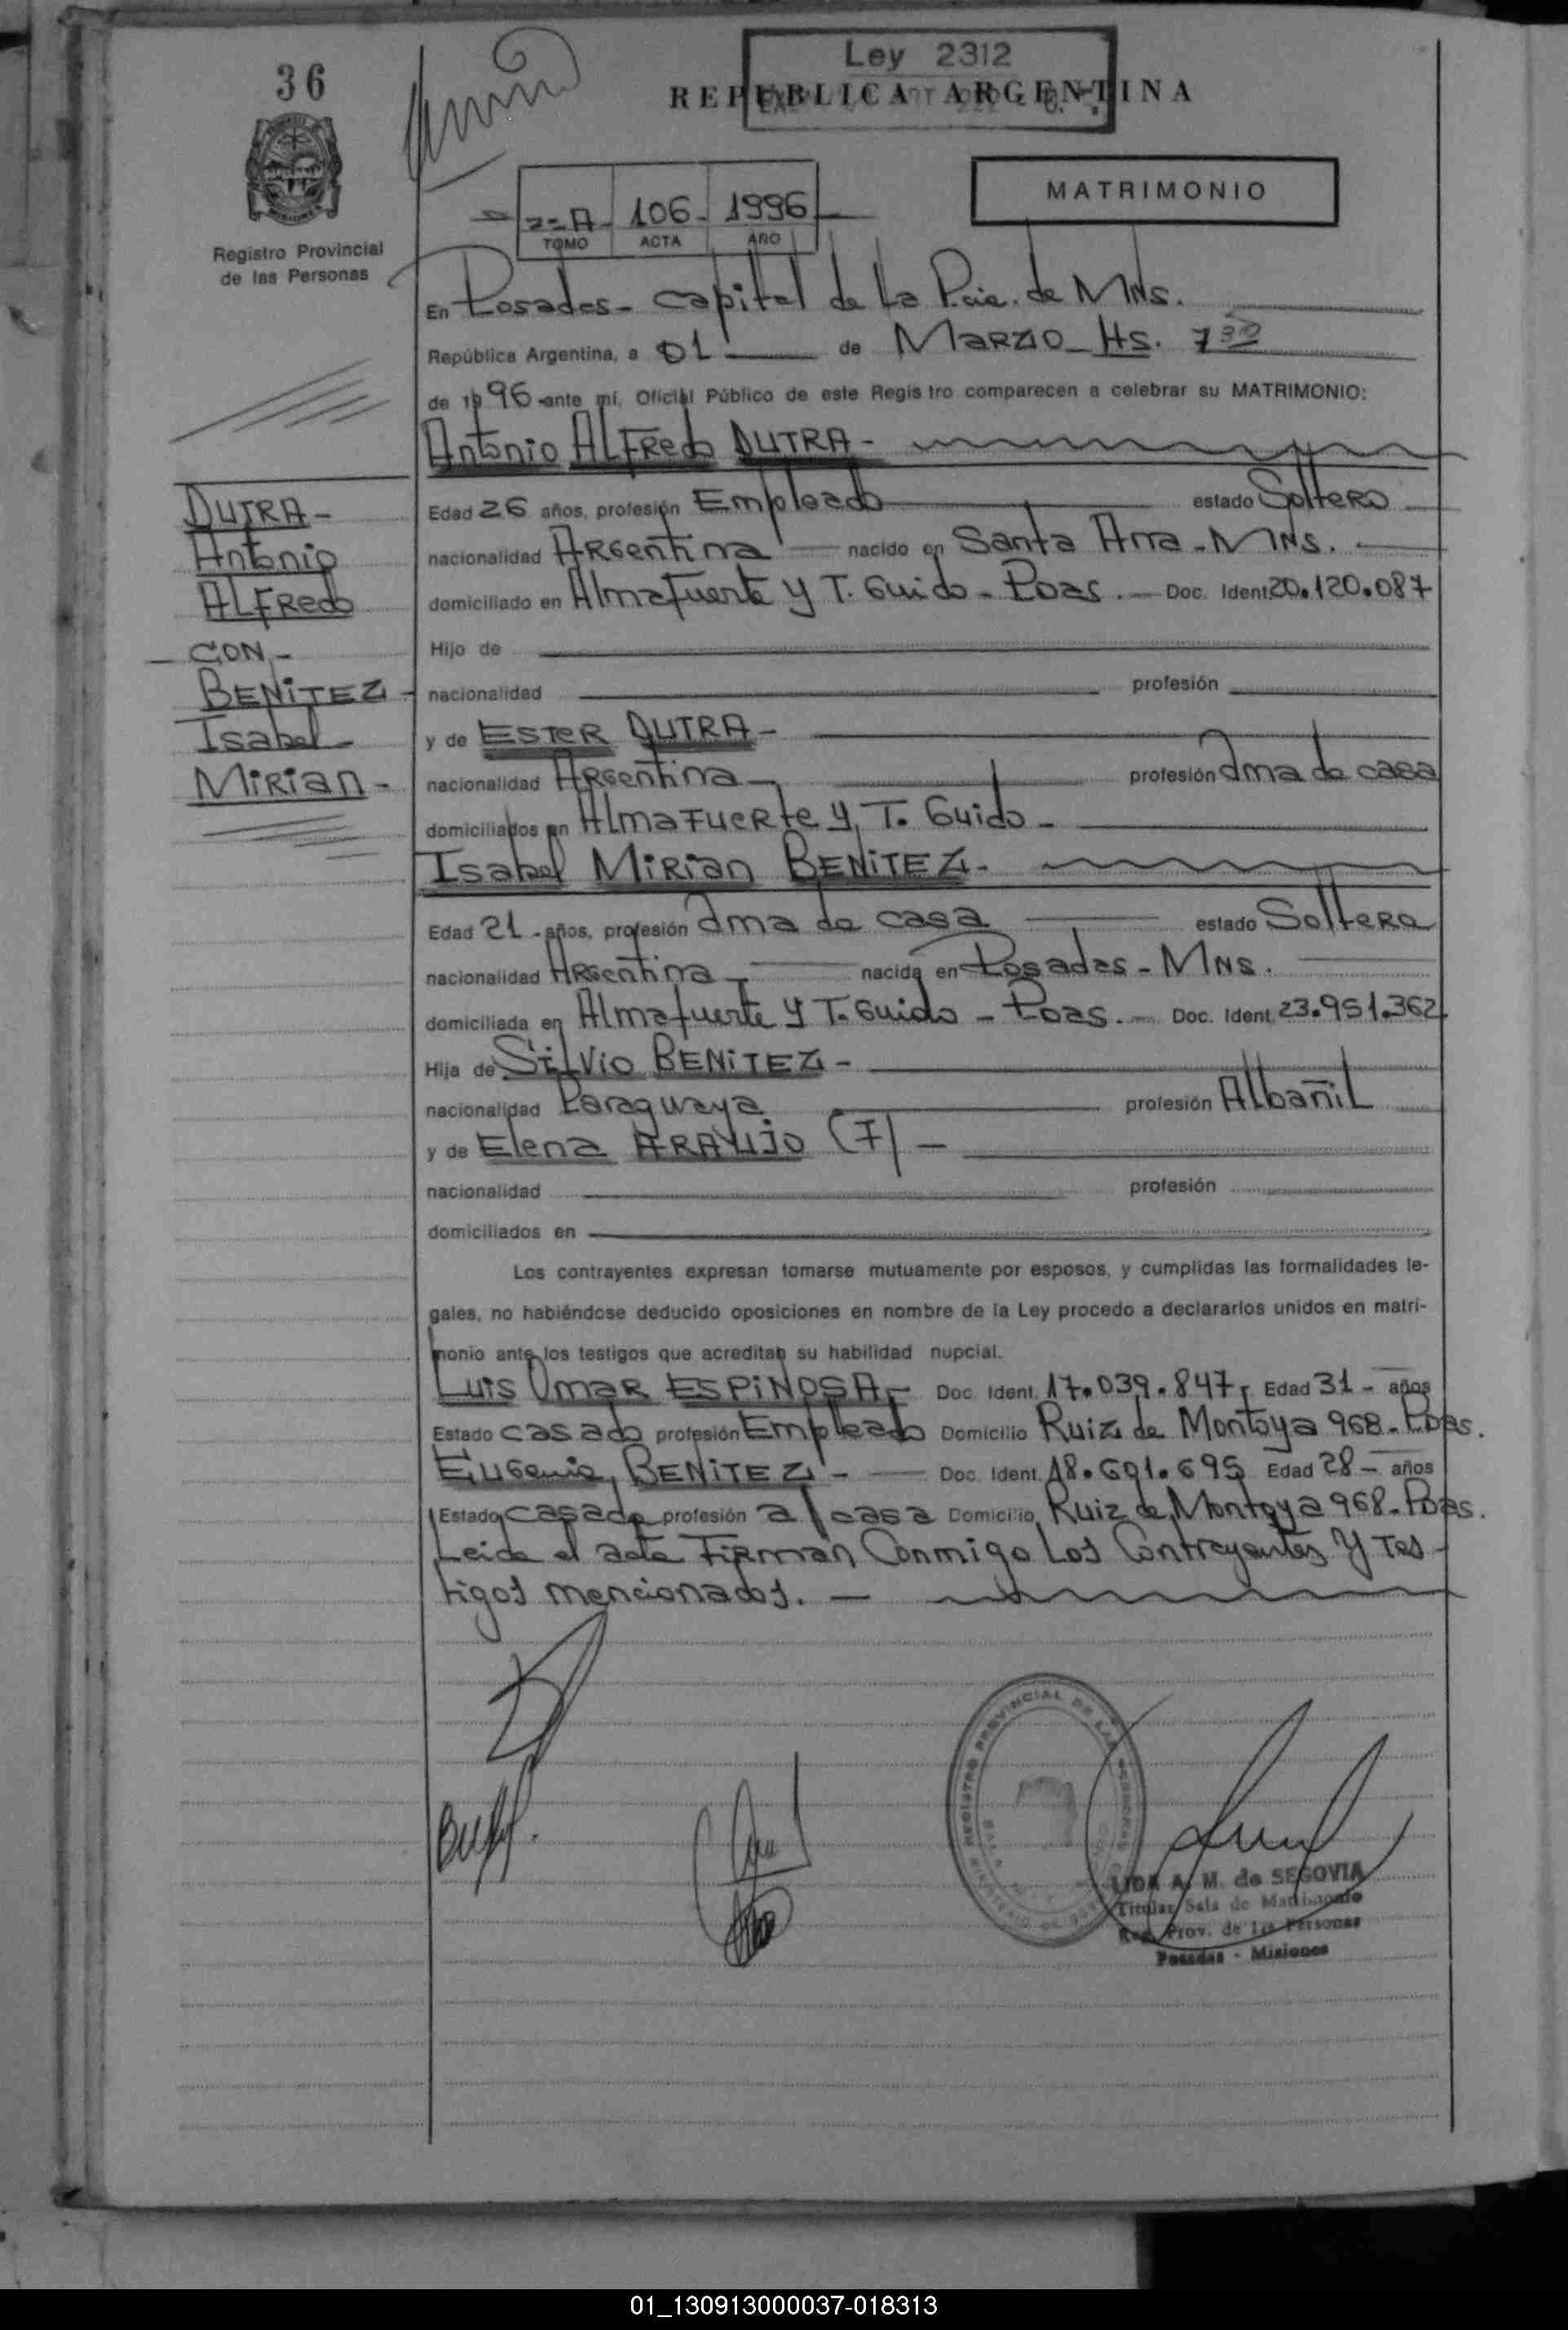 36
Ley 2312
REPUBLICA ARGENTINA
MATRIMONIO
2=A- 106- 1996
TOMO ACTA AÑO
Registro Provincial
de las Personas
En Posadas- Capital de La Pcia. de MNS.
República Argentina, a 01 de MARZO Hs. 7 30
de 1996 ante mí, Oficial Público de este Registro comparecen a celebrar su MATRIMONIO:
Antonio ALFRedo DUTRA-
DUTRA-
Antonio
ALFRedo
CON-
BENiTEZ-
Isabel-
MiRian-
Edad 26 años, profesión Empleado estado Soltero
nacionalidad ARgentina nacido en Santa Ana-MNS.
domiciliado en Almafuerte y T. Guido- Pdas. Doc. Ident. 20.120.087
Hijo de
nacionalidad profesión
y de ESTER DUTRA-
nacionalidad ARgentina- profesión ama de casa
domiciliados en AlmaFueRte y T. Guido-
Isabel MiRian BENiTEZ-
Edad 21- años, profesión ama de casa estado SolteRa
nacionalidad ARgentina- nacida en Posadas- MNS.
domiciliada en Almafuerte y T. Guido- Pdas. Doc. Ident. 23.951.362
Hija de SiLVio BENiTEZ-
nacionalidad Paraguaya profesión AlbañiL
y de Elena ARAUJO (7)-
nacionalidad profesión
domiciliados en
Los contrayentes expresan tomarse mutuamente por esposos, y cumplidas las formalidades le-
gales, no habiéndose deducido oposiciones en nombre de la Ley procedo a declararlos unidos en matri-
monio ante los testigos que acreditan su habilidad nupcial.
Luis OmaR ESPiNOSA- Doc. Ident. 17.039.847- Edad 31- años
Estado casado profesión Empleado Domicilio Ruiz de Montoya 968- Pdas.
Eugenia BENiTEZ- Doc. Ident. 18.691.695 Edad 28- años
Estado casada profesión a/casa Domicilio Ruiz de Montoya 968- Pdas.
Leida el acta Firman Conmigo Los Contrayentes Y Tes-
tigos mencionados.
REGISTRO PROVINCIAL DE LAS PERSONAS
LIDA A. M. de SEGOVIA
Titular Sala de Matrimonio
Reg. Prov. de las Personas
Posadas - Misiones
01_130913000037-018313